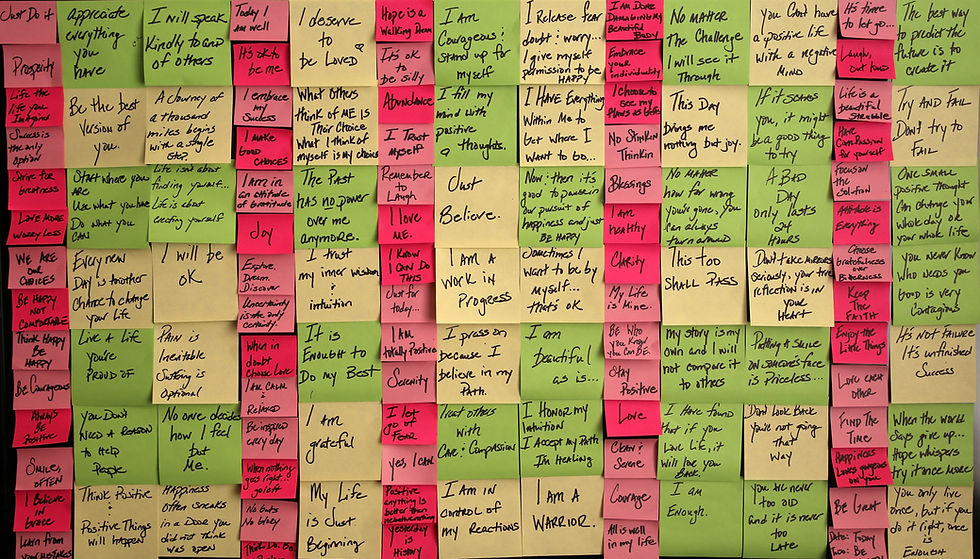 Just Do it
Prosperity
Life the
life you
Imagine
Success is
the only
Option
Strive for
Greatness
Love more
Worry Less
WE ARE
our
CHOICES
BE HAPPY
NOT
COMFORTABLE
Think Happy
BE
HAPPY
Be Courageous
Always
BE
Positive
SMILE,
OFTEN
I Believe
in
Grace
Learn from
your mistakes
appreciate
everything
you
have
Be the best
Version of
you.
START where you
ARE
Use what you have
Do what you
CAN
Every new
Day is another
Chance to change
your Life
Live A Life
you're
PROUD OF
you Don't
NEED A REASON
to Help
People
Think Positive
&
Positive Things
will happen
I will speak
Kindly to and
of others
A Journey of
a thousand
miles begins
with a single
Step.
Life isn't about
finding yourself...
Life is about
creating yourself
I will be
OK
Pain is
Inevitable
Suffering is
Optional
No one decides
how I feel
but
Me.
Happiness
Often sneaks
in a Door you
did not think
was open
Today I
Am well
It's ok to
be me.
I embrace
my
Success
I make
GOOD
CHOICES
I am in
an attitude
of Gratitude
Joy
Explore.
Dream.
Discover
Uncertainty
is the only
certainty.
When in
doubt
choose Love
I AM CALM
&
Relaxed
Be inspired
every day
When nothing
goes right...
go left
No Guts
No Glory
I deserve
to
be Loved
What others
think of ME is
Their Choice
What I think of
myself is my choice
The Past
has no power
over me
anymore.
I trust
my inner wisdom
&
intuition
It is
ENOUGH to
Do my Best
I am
grateful
My Life
is Just
Beginning
Hope is a
Walking Dream
It's OK
to be silly
Abundance
I Trust
Myself
Remember
to
Laugh
I love
ME.
I Know
I CAN DO
THIS
Just for
today...
I AM
totally Positive
Serenity
I let
go of
FEAR
yes, I CAN
Positive
anything is
better than
negative nothing
yesterday
is
History
I am
Courageous &
Stand up for
myself
I fill my
mind with
positive
thoughts.
Just
Believe.
I AM A
WORK in
PROGRESS
I press on
because I
believe in my
PATH.
Treat others
with
Care & Compassion
I AM IN
CONTROL of
my Reactions
I Release fear
doubt & worry...
I give myself
permission to be
HAPPY
I HAVE Everything
Within Me to
Get where I
WANT to GO...
Now & then it's
good to pause in
our pursuit of
happiness and just
BE HAPPY
Sometimes I
want to be by
myself...
that's OK
I am
Beautiful
as is...
I HONOR My
Intuition
I Accept my Path
I'm Healing
I AM A
WARRIOR.
I AM DONE
DAMAGING My
Beautiful
BODY
Embrace
your
individuality
I choose to
see my
PLANS as better
No Stinkin
Thinkin
Blessings
I AM
healthy
Clarity
My Life
is Mine.
BE WHO
You Know
You CAN BE.
STAY
Positive
Love
CLEAN &
Serene
Courage
All is well
in my life
No MATTER
The Challenge
I will see it
Through
This Day
brings me
nothing but joy.
No MATTER
how far wrong
you've gone, you
can always
turn around
This too
SHALL PASS
my story is my
own and I will
not compare it
to others
I have found
that if you
Love life, it
will love you
BACK.
I am
Enough.
you Can't have
a positive life
With a negative
MIND
If it SCARES
you, it might
be a good thing
to try
A BAD
DAY
only lasts
24
HOURS
Don't take mirrors
seriously, your true
reflection is in
your
HEART
Putting A Smile
on Someone's face
is Priceless...
Don't Look BACK
You're not going
that
WAY
you're never
too old
and it is never
too
LATE
It's time
to let go...
Laugh,
out loud
Life is a
beautiful
struggle
Have
Compassion
for yourself
Focus on
the
solution
Attitude is
Everything
Choose
Gratefulness
over
Bitterness
KEEP
THE
FAITH
Enjoy the
Little Things
LOVE each
other
FIND THE
TIME
HAPPINESS
Looks gorgeous
on you
Be Great
The best way
to predict the
future is to
create it
Try AND FAIL
Don't try to
FAIL
ONE SMALL
positive Thought
Can change your
whole day or
your whole life
you never Know
Who needs you
Good is very
Contagious
It's not FAILURE
It's unfinished
Success
When the world
Says give up...
Hope whispers
try it once more
you only live
once, but if you
do it right, once
is
ENOUGH